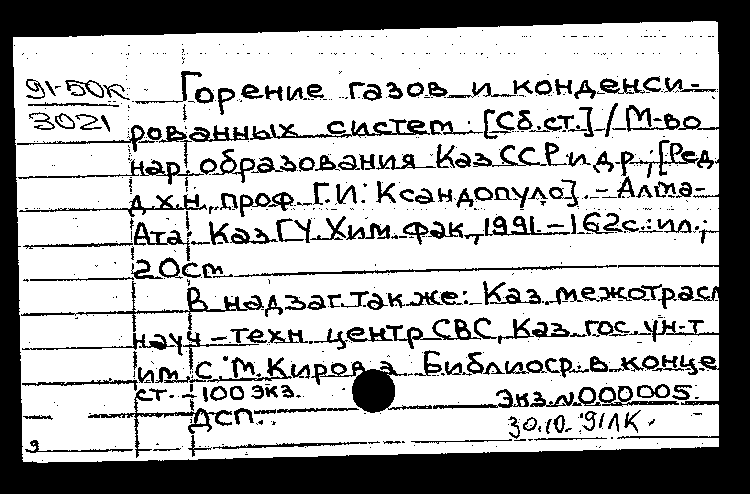 91-50к
3021
Горение газов и конденси-
рованных систем : [Сб.ст.] / М-во
нар. образования КазССР и др.; [Ред.
д.х.н., проф. Г.И. Ксандопуло]. - Алма-
Ата : КазГУ. Хим. фак., 1991. - 162с.: ил.;
20см
В надзаг. также: Каз. межотрасл.
науч.-техн. центр СВС, Каз. гос. ун-т
им. С. М. Кирова. Библиогр. в конце
ст. - 100 экз. Экз. N 000005.
ДСП.. 30.10. 91 ЛК.
9